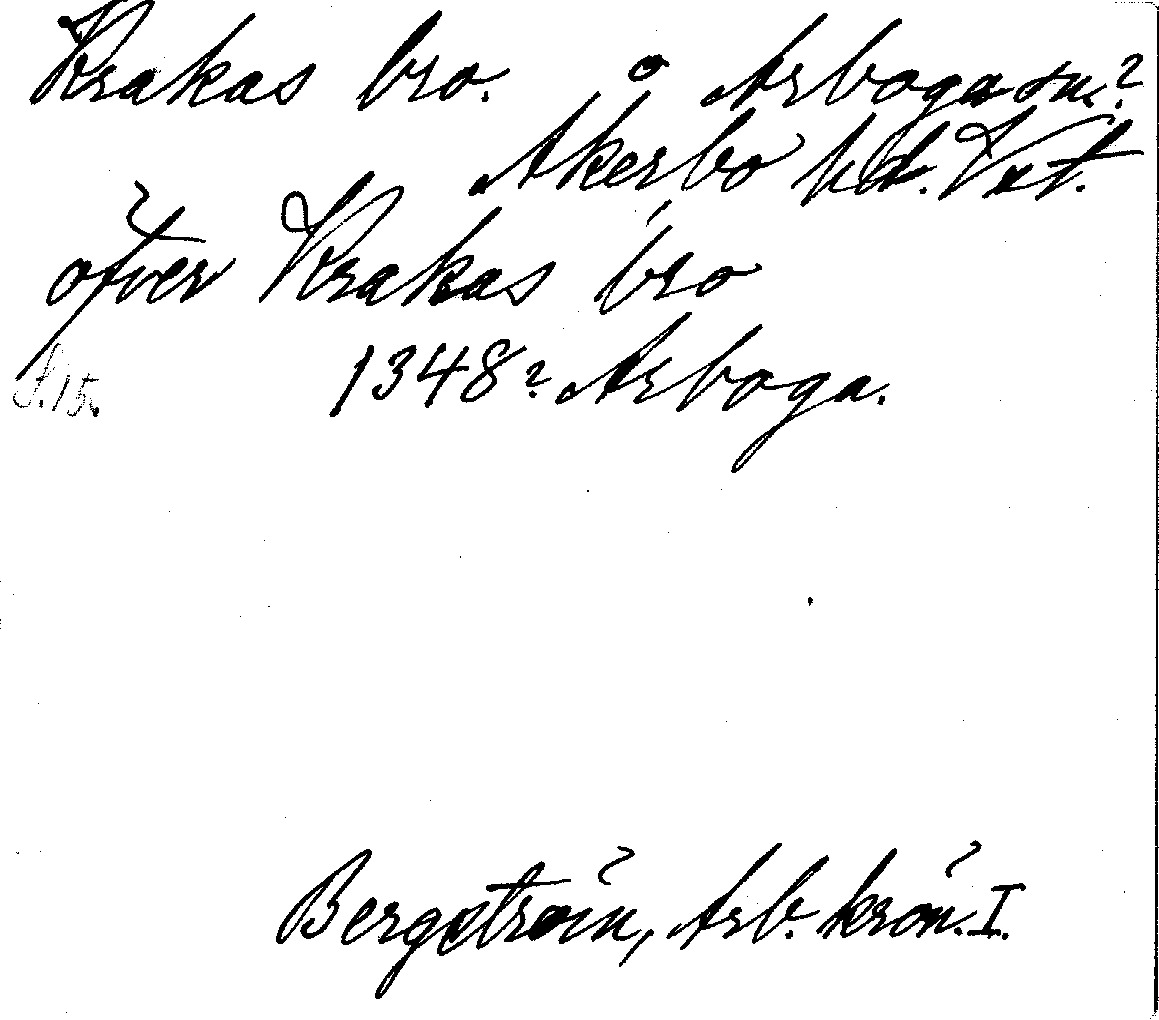 Krakas bro. Arboga sn.?
Åkerbo hd. Vstm.
öfver Krakas bro
S. 15. 1348? Arboga.
Bergström, Arb. krön. I.